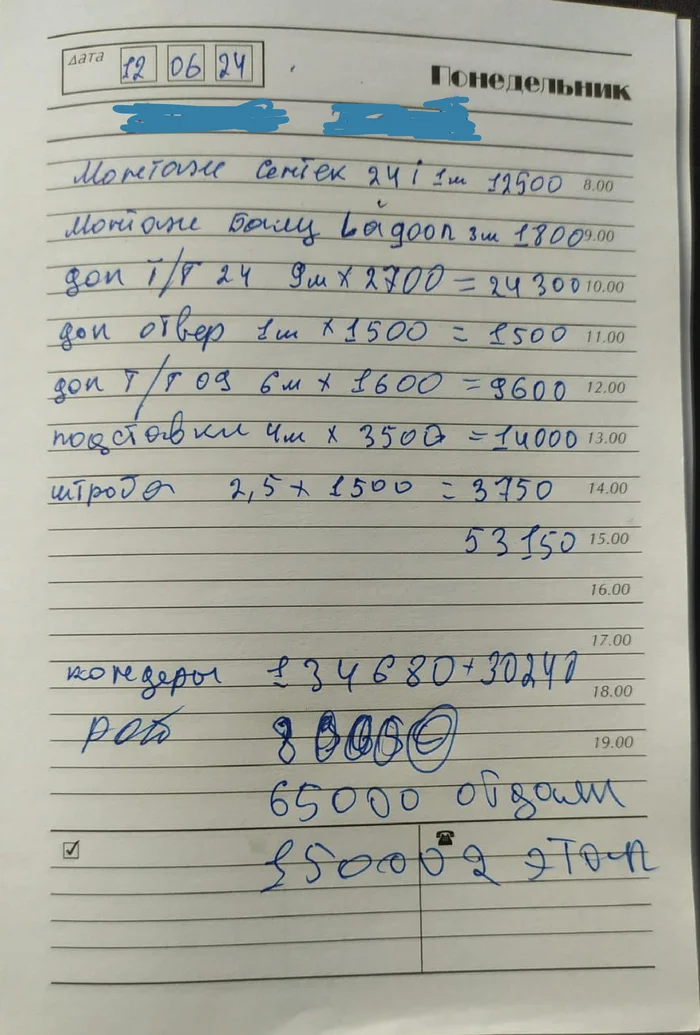 дата 12 06 24
Понедельник
Монтаж Сентек 24 i 1м 12500 8.00
Монтаж Балу Lagoon 3м 1800 9.00
доп т/т 24 9м x 2700 = 24300 10.00
доп отвер 1м x 1500 = 1500 11.00
доп т/т 09 6м x 1600 = 9600 12.00
подставки 4м x 3500 = 14000 13.00
штроба 2,5 x 1500 = 3750 14.00
53150 15.00
16.00
17.00
кондеры 134680 + 30240
18.00
19.00
65000 отдали
15000 2 этап